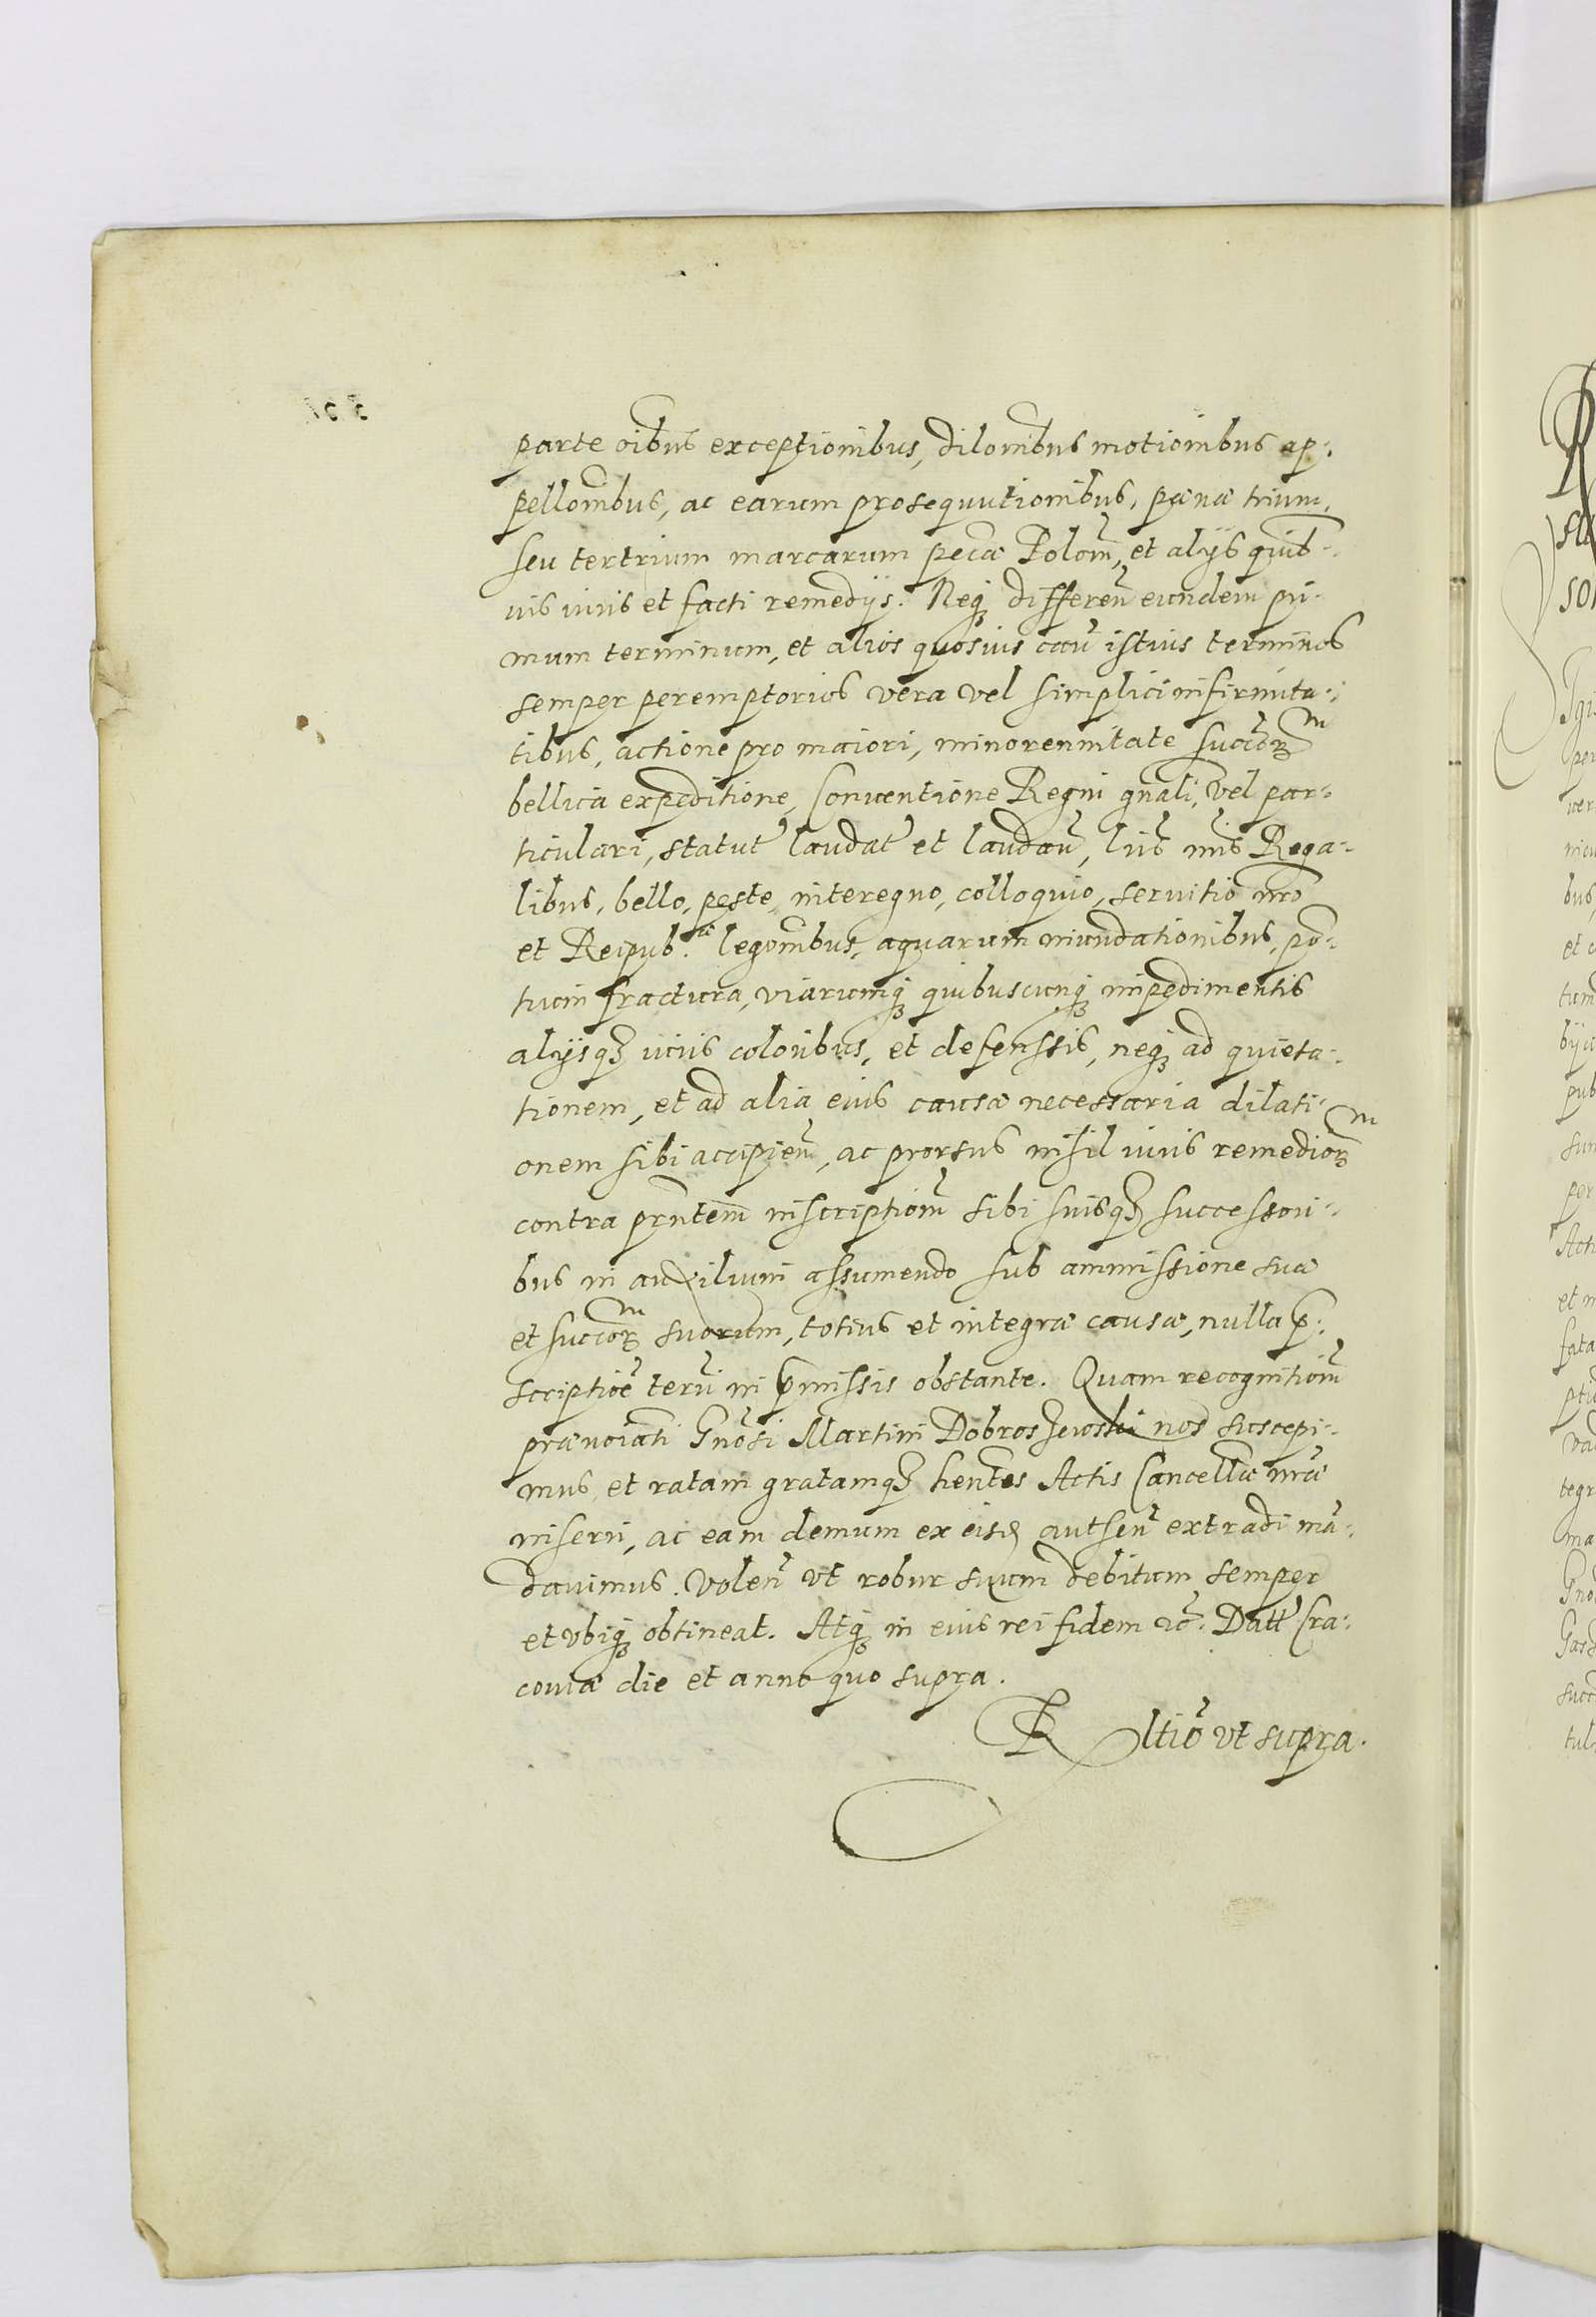 parte oibus exceptionibus, dilombus motionibus ap:
pellombus, ac earum prosequutionibus, pænæ trium,
seu tertrium marcarum pecæ Polom, et alÿs quib-
uis iuris et facti remedÿs. Neq3 differen eundem pri-
mum terminum, et alios quosius cau istius terminos
semper peremptorios vera vel simplici infirmita-
tibus, actione pro maiori, minorennitate succor
bellica expeditione, Conuentione Regni gnali, vel par-
ticulari, statut laudat et laudan, lris nris Rega-
libus, bello, peste, interegno, colloquio, seruitio nro
et Reipub. legombus, aquarum inundationibus, pon-
tium fractura, viarumq3 quibuscunq3 impedimentis
alÿsq3 iuris coloribus, et defenssis, neq3 ad quieta-
tionem, et ad alia eius causæ necessaria dilati-
onem sibi accipien, ac prorsus nihil iuris remedior
contra prntem inscriptiom sibi suisq3 successori-
bus in auxilium assumendo sub ammissione suæ
et succor suorum, totius et integræ causæ, nulla p:
scriptioe terri in pmissis obstante. Quam recognitiom
prænoiati Gnosi Martini Dobroszewski nos suscepi-
mus, et ratam gratamq3 hentes Actis Cancellæ nræ
inseri, ac eam demum ex eisd autsen extradi man-
dauimus. Volen vt robur suum debitum semper
et vbiq3 obtineat. Atq3 in eius rei fidem etc. Datt Cra-
couiæ die et anno quo supra.
Rltio vt supra.